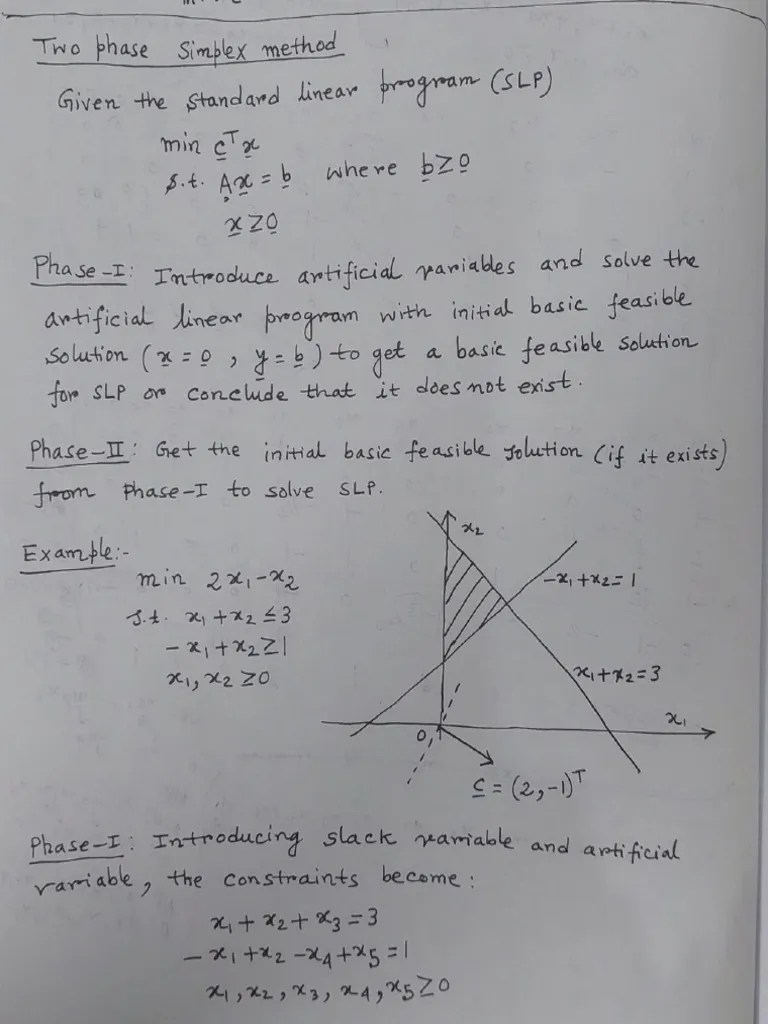 Two phase Simplex method
Given the standard linear program (SLP)
min c^T x
s.t. Ax = b where b ≥ 0
x ≥ 0
Phase-I: Introduce artificial variables and solve the
artificial linear program with initial basic feasible
solution (x = 0, y = b) to get a basic feasible solution
for SLP or conclude that it does not exist.
Phase-II: Get the initial basic feasible solution (if it exists)
from Phase-I to solve SLP.
Example:-
min 2x₁-x₂
s.t. x₁+x₂ ≤ 3
-x₁+x₂ ≥ 1
x₁, x₂ ≥ 0
x₂
-x₁+x₂ = 1
x₁+x₂ = 3
x₁
0
c = (2,-1)^T
Phase-I: Introducing slack variable and artificial
variable, the constraints become:
x₁ + x₂ + x₃ = 3
-x₁ + x₂ - x₄ + x₅ = 1
x₁, x₂, x₃, x₄, x₅ ≥ 0